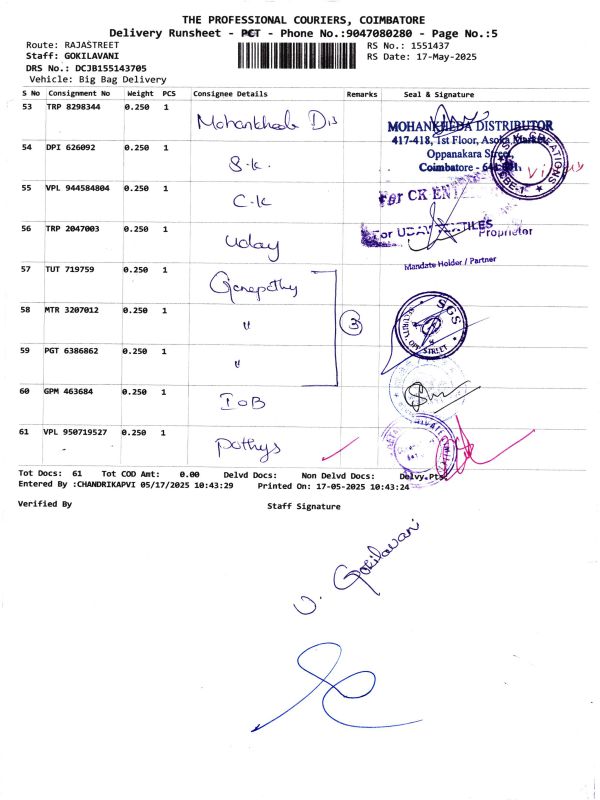 THE PROFESSIONAL COURIERS, COIMBATORE
Delivery Runsheet - PCT - Phone No.:9047080280 - Page No.:5
Route: RAJASTREET
RS No.: 1551437
Staff: GOKILAVANI
RS Date: 17-May-2025
DRS No.: DCJB155143705
Vehicle: Big Bag Delivery
S No Consignment No Weight PCS Consignee Details Remarks Seal & Signature
53 TRP 8298344 0.250 1 Mohankheda Dis
MOHANKHEDA DISTRIBUTOR
417-418, 1st Floor, Asoka Market,
Oppanakara Street,
Coimbatore - 641 001.
54 DPI 626092 0.250 1 S.K.
S.K. CREATIONS
CBE-1.
55 VPL 944584804 0.250 1 C.K
For CK EN
56 TRP 2047003 0.250 1 Uday
For UDAY TEXTILES
Proprietor
57 TUT 719759 0.250 1 Ganapathy
Mandate Holder / Partner
58 MTR 3207012 0.250 1 "
3
SGS
59 PGT 6386862 0.250 1 "
60 GPM 463684 0.250 1 IOB
61 VPL 950719527 0.250 1 Pothys
Tot Docs: 61 Tot COD Amt: 0.00 Delvd Docs: Non Delvd Docs: Delvy.Pts:
Entered By :CHANDRIKAPVI 05/17/2025 10:43:29 Printed On: 17-05-2025 10:43:24
Verified By
Staff Signature
V. Gokilavani